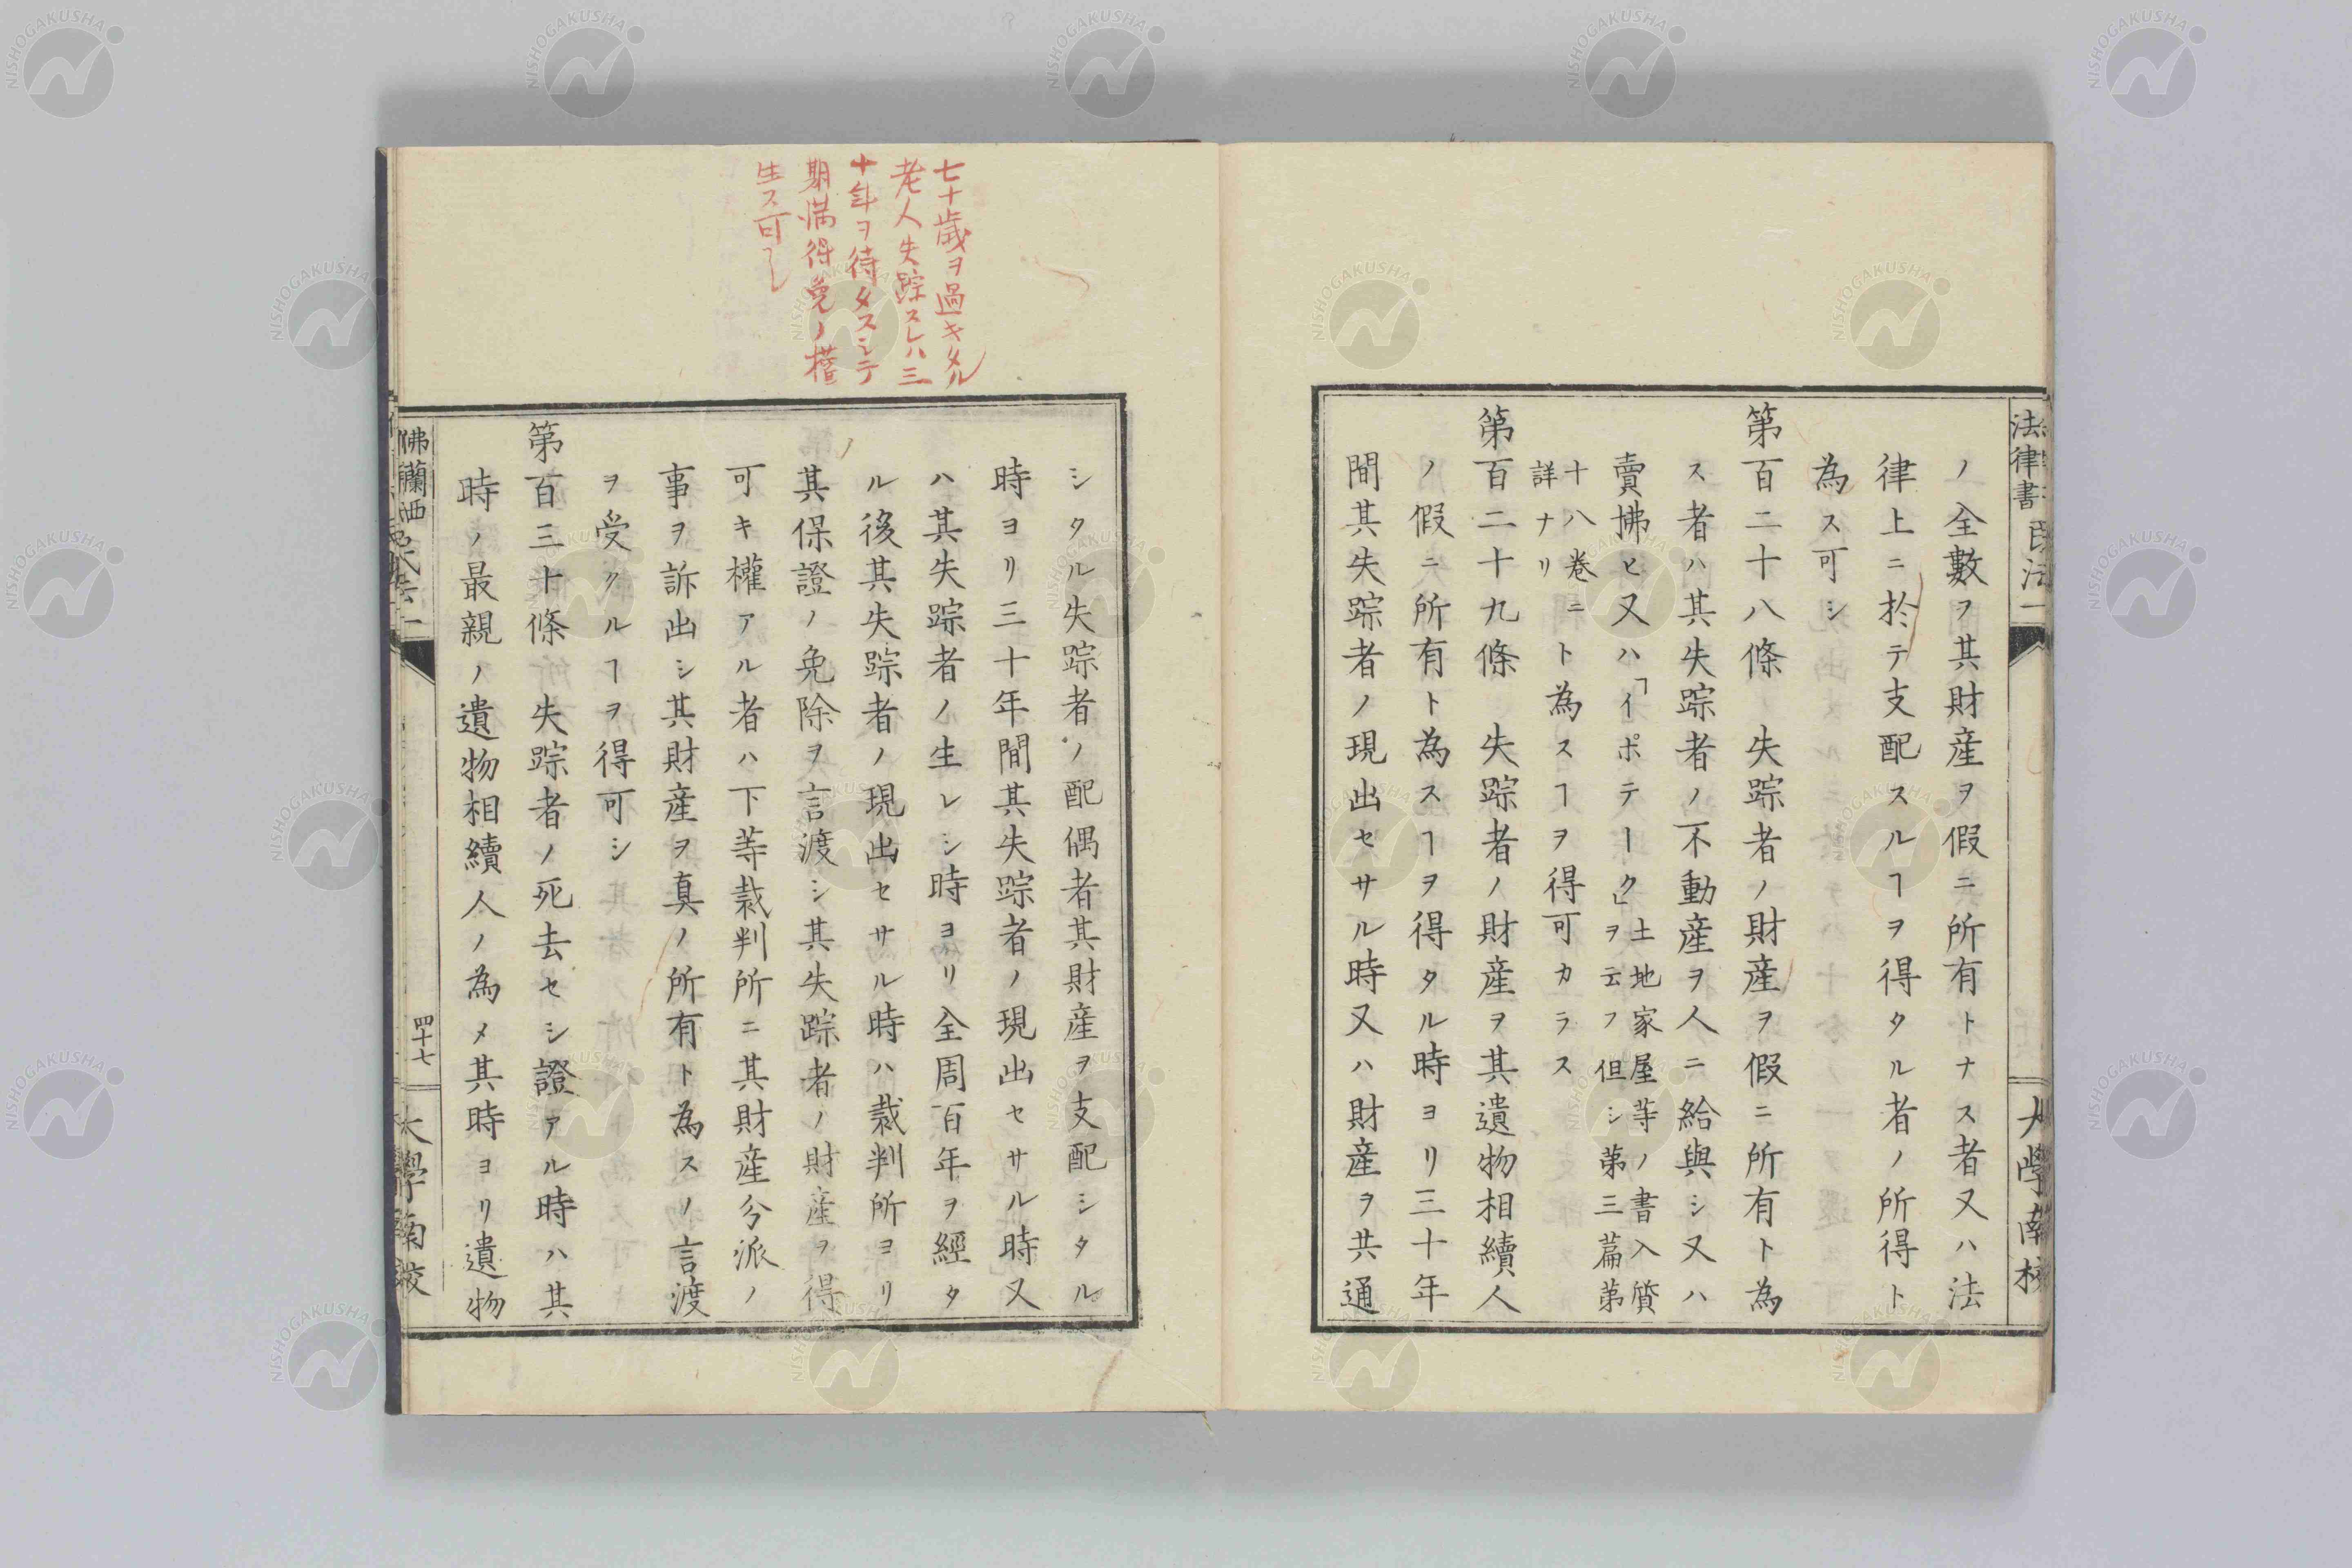 法律書 民法一
大學南校
ノ全數ヲ其財産ヲ假ニ所有トナス者又ハ法
律上ニ於テ支配スルヿヲ得タル者ノ所得ト
為ス可シ
第百二十八條 失踪者ノ財産ヲ假ニ所有ト為
ス者ハ其失踪者ノ不動産ヲ人ニ給與シ又ハ
賣拂ヒ又ハ「イポテーク」土地家屋等ノ書入質ヲ云フ但シ第三篇第
十八巻ニ詳ナリト為スヿヲ得可カラス
第百二十九條 失踪者ノ財産ヲ其遺物相續人
ノ假ニ所有ト為スヿヲ得タル時ヨリ三十年
間其失踪者ノ現出セサル時又ハ財産ヲ共通
七十歳ヲ過キタル
老人失踪スレハ三
十年ヲ待タスシテ
期満得免ノ權
生ス可シ
シタル失踪者ノ配偶者其財産ヲ支配シタル
時ヨリ三十年間其失踪者ノ現出セサル時又
ハ其失踪者ノ生レシ時ヨリ全周百年ヲ經タ
ル後其失踪者ノ現出セサル時ハ裁判所ヨリ
其保證ノ免除ヲ言渡シ其失踪者ノ財産ヲ得
可キ權アル者ハ下等裁判所ニ其財産分派ノ
事ヲ訴出シ其財産ヲ真ノ所有ト為スノ言渡
ヲ受クルヿヲ得可シ
第百三十條 失踪者ノ死去セシ證アル時ハ其
時ノ最親ノ遺物相續人ノ為メ其時ヨリ遺物
佛蘭西
四十七
大學南校
NISHOGAKUSHA